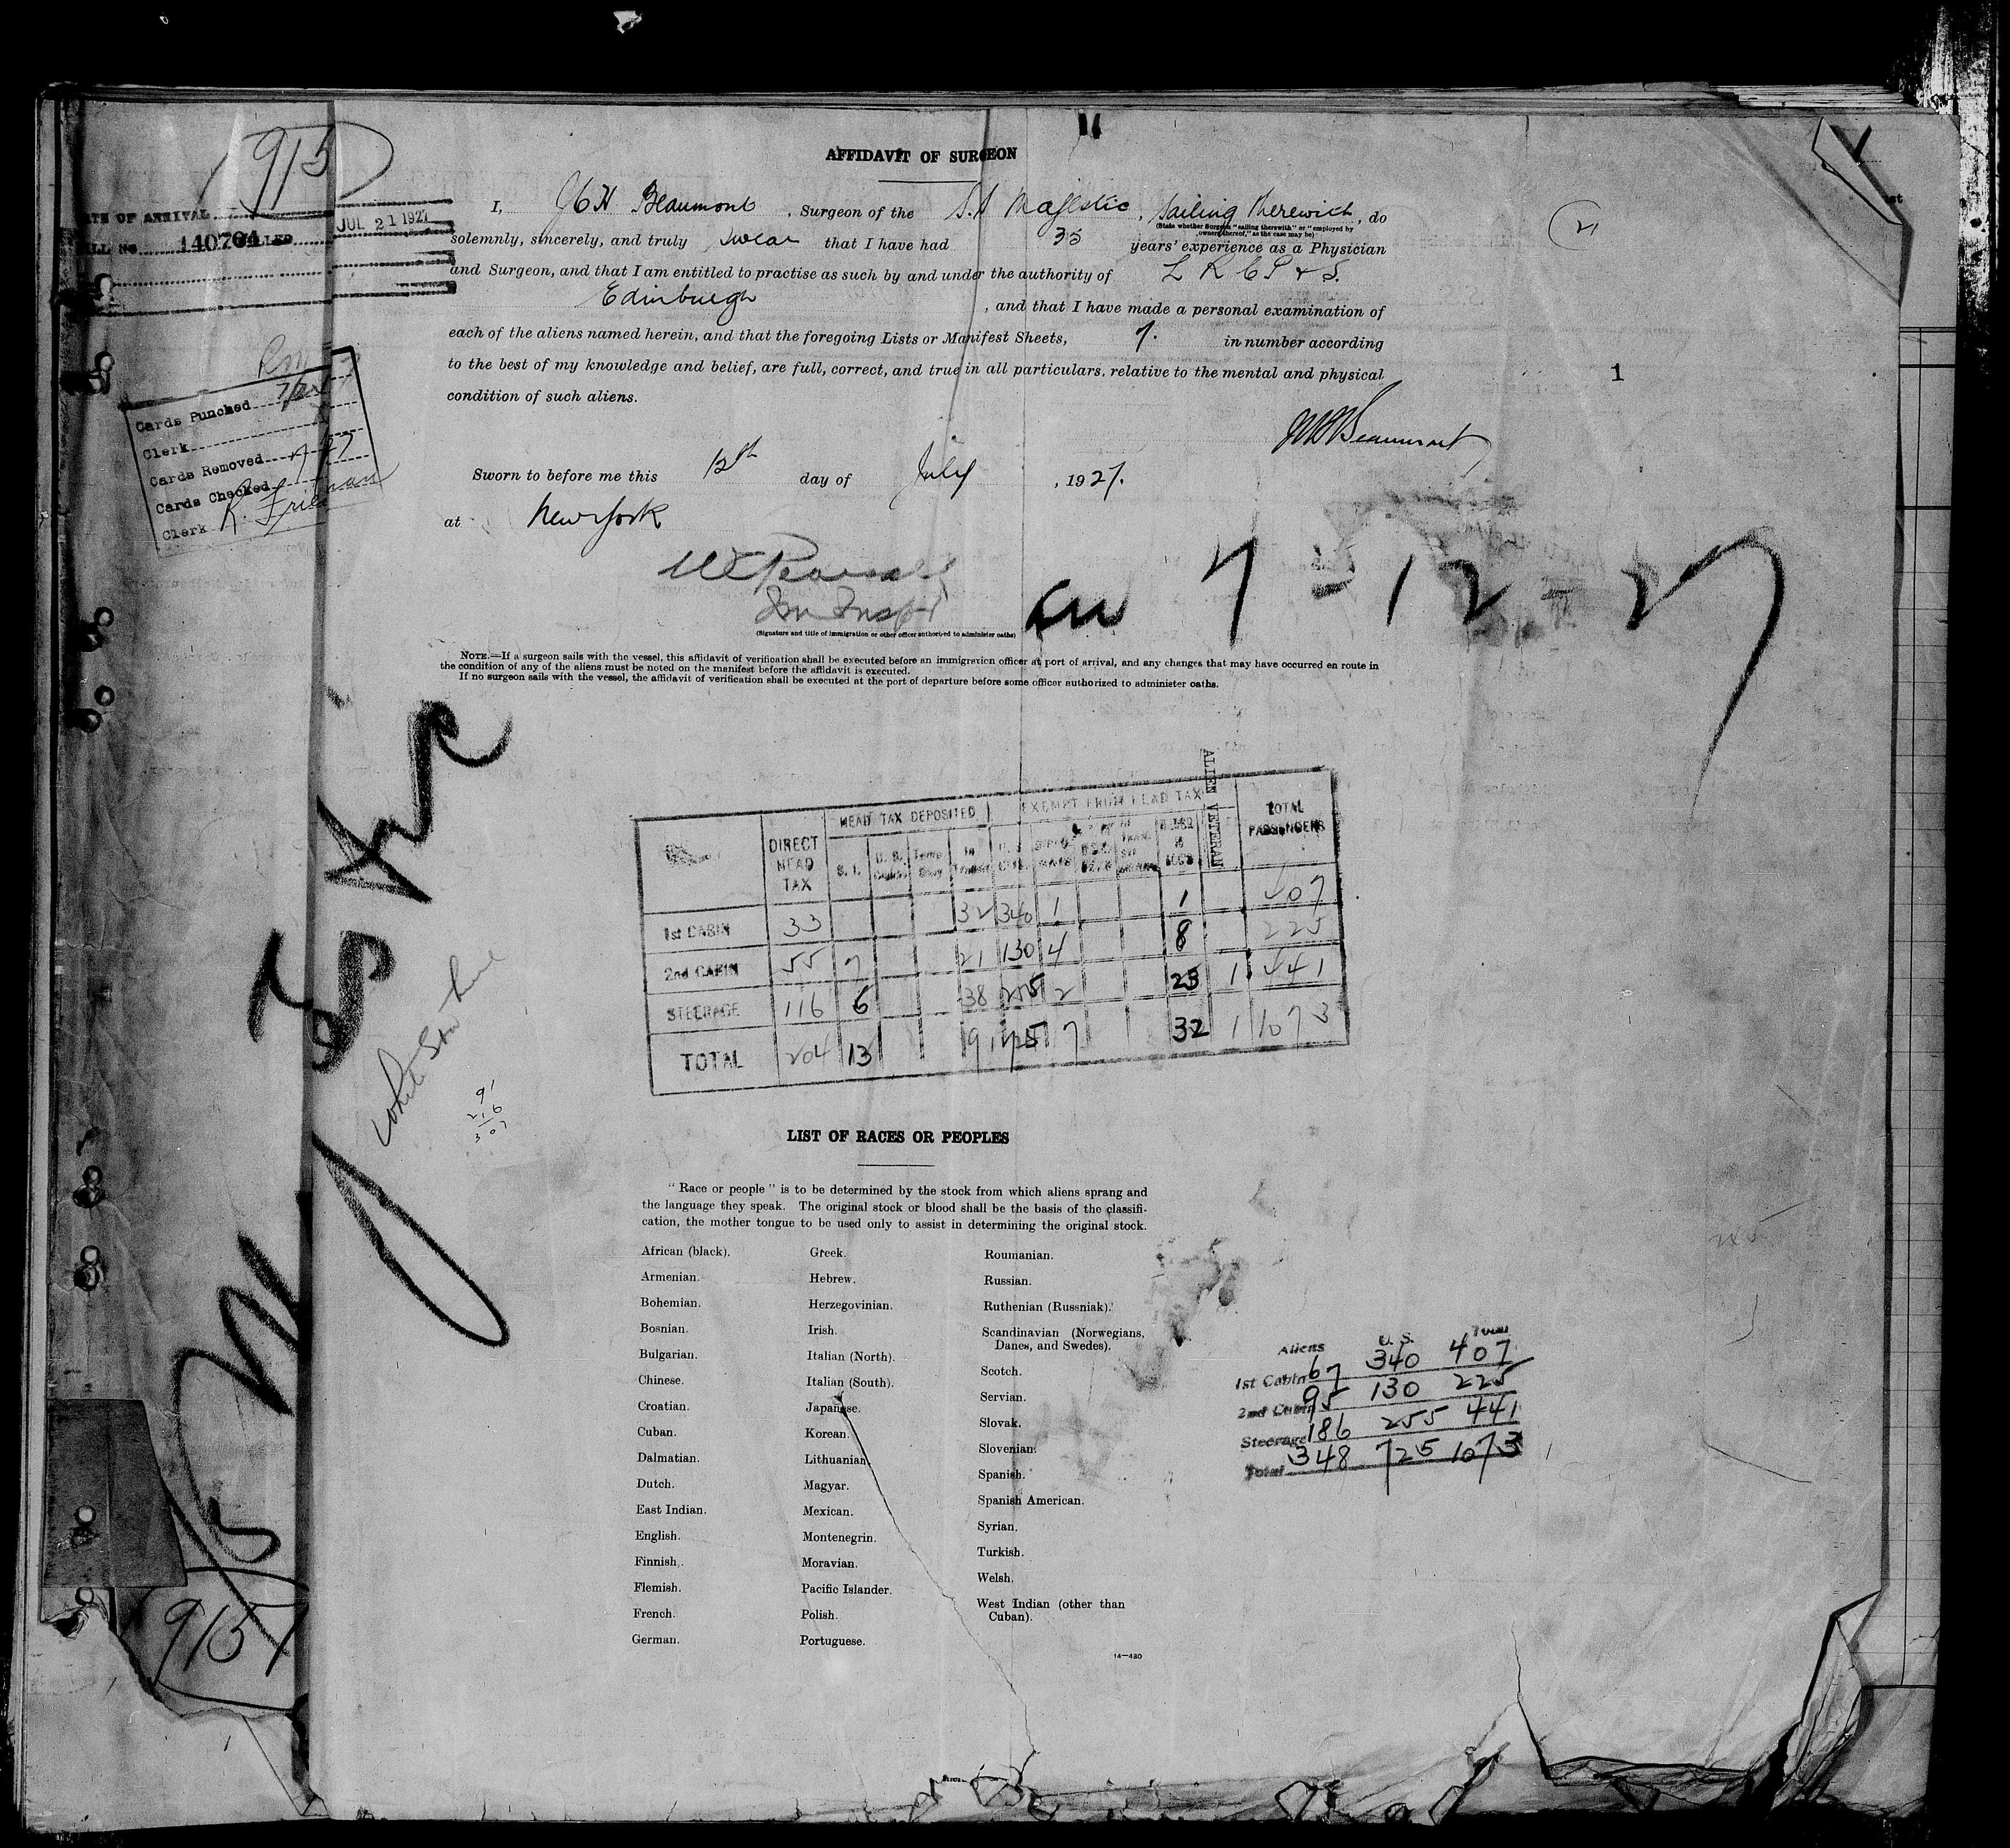 915
DATE OF ARRIVAL
JUL 21 1927
BILL NO 140794 BILLED
AFFIDAVIT OF SURGEON
I, J C H Beaumont, Surgeon of the S.S Majestic, sailing therewith, do
(State whether Surgeon "sailing therewith" or "employed by
owners thereof," as the case may be)
solemnly, sincerely, and truly swear that I have had 35 years' experience as a Physician
and Surgeon, and that I am entitled to practise as such by and under the authority of L R C P & S.
Edinburgh, and that I have made a personal examination of
each of the aliens named herein, and that the foregoing Lists or Manifest Sheets, 7. in number according
to the best of my knowledge and belief, are full, correct, and true in all particulars, relative to the mental and physical
condition of such aliens.
JCH Beaumont
1
Cards Punched
Clerk
Cards Removed
Cards Checked
Clerk
Sworn to before me this 12th day of July, 1927.
at New York
Im Inspr
(Signature and title of immigration or other officer authorized to administer oaths)
7-12-27
NOTE.—If a surgeon sails with the vessel, this affidavit of verification shall be executed before an immigration officer at port of arrival, and any changes that may have occurred en route in
the condition of any of the aliens must be noted on the manifest before the affidavit is executed.
If no surgeon sails with the vessel, the affidavit of verification shall be executed at the port of departure before some officer authorized to administer oaths.
Majestic
White Star Line
91
216
307
DIRECT HEAD TAX
HEAD TAX DEPOSITED
EXEMPT FROM HEAD TAX
ALIEN VETERAN
TOTAL PASSENGERS
S. I.
In Transit
1st CABIN 33 32 340 1 1 407
2nd CABIN 55 7 21 130 4 8 225
STEERAGE 116 6 38 255 2 23 1 441
TOTAL 204 13 91 725 7 32 1 1073
LIST OF RACES OR PEOPLES
"Race or people" is to be determined by the stock from which aliens sprang and
the language they speak. The original stock or blood shall be the basis of the classifi-
cation, the mother tongue to be used only to assist in determining the original stock.
African (black).
Armenian.
Bohemian.
Bosnian.
Bulgarian.
Chinese.
Croatian.
Cuban.
Dalmatian.
Dutch.
East Indian.
English.
Finnish.
Flemish.
French.
German.
Greek.
Hebrew.
Herzegovinian.
Irish.
Italian (North).
Italian (South).
Japanese.
Korean.
Lithuanian.
Magyar.
Mexican.
Montenegrin.
Moravian.
Pacific Islander.
Polish.
Portuguese.
Roumanian.
Russian.
Ruthenian (Russniak).
Scandinavian (Norwegians,
Danes, and Swedes).
Scotch.
Servian.
Slovak.
Slovenian.
Spanish.
Spanish American.
Syrian.
Turkish.
Welsh.
West Indian (other than
Cuban).
14—430
Aliens U. S. Total
1st Cabin 67 340 407
2nd Cabin 95 130 225
Steerage 186 255 441
Total 348 725 1073
915